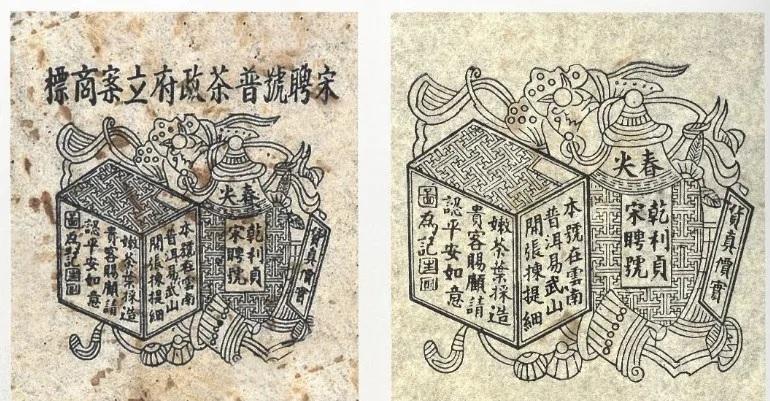 宋聘號普茶政府立案商標
春尖
乾利貞
宋聘號
貨真價實
本號在雲南
普洱易武山
開張揀提細
嫩茶葉採造
貴客賜顧請
認平安如意
圖為記
春尖
乾利貞
宋聘號
貨真價實
本號在雲南
普洱易武山
開張揀提細
嫩茶葉採造
貴客賜顧請
認平安如意
圖為記